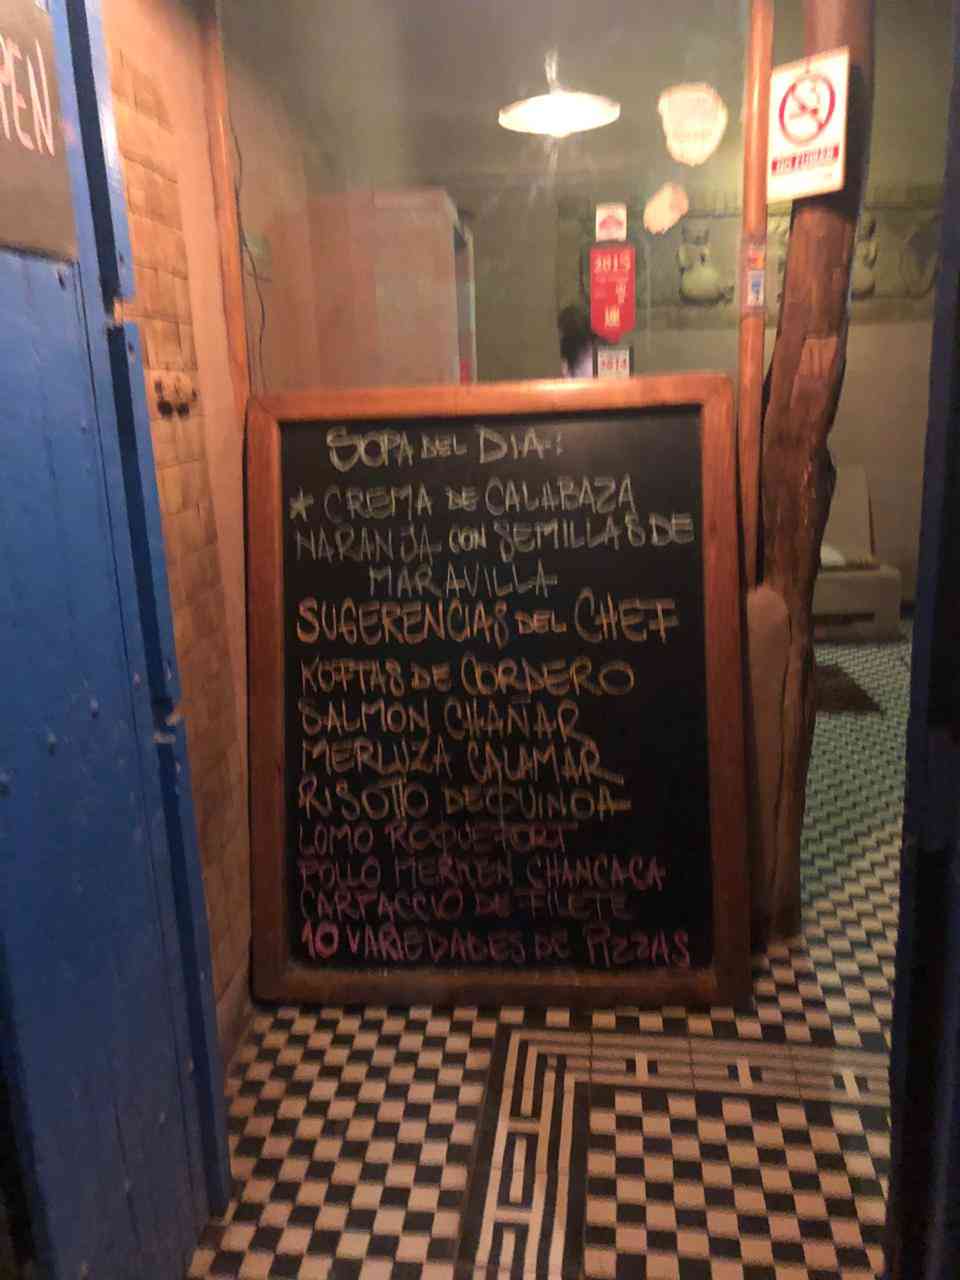 PEN
NO FUMAR
2015
2014
SOPA DEL DIA:
* CREMA DE CALABAZA
NARANJA CON SEMILLAS DE
MARAVILLA
SUGERENCIAS DEL CHEF
KOFTAS DE CORDERO
SALMON CHAÑAR
MERLUZA CALAMAR
RISOTTO DE QUINOA
LOMO ROQUEFORT
POLLO MERKEN CHANCACA
CARPACCIO DE FILETE
10 VARIEDADES DE PIZZAS